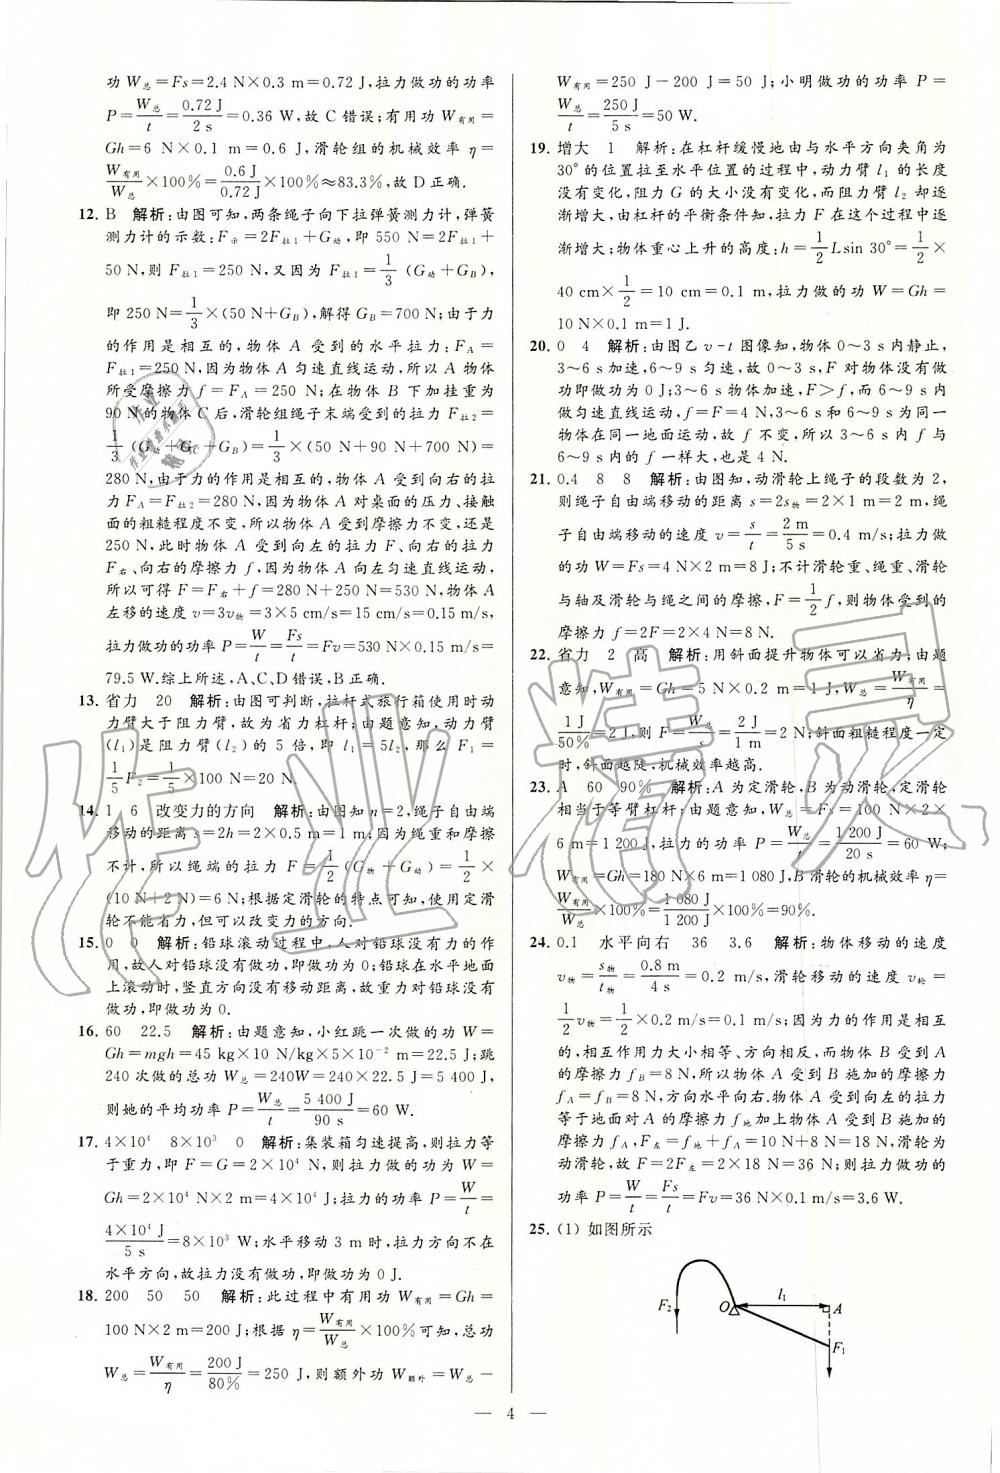 功W总=Fs=2.4 N×0.3 m=0.72 J,拉力做功的功率
P=W总/t=0.72 J/2 s=0.36 W,故C错误;有用功W有用=
Gh=6 N×0.1 m=0.6 J,滑轮组的机械效率η=
W有用/W总×100%=0.6 J/0.72 J×100%≈83.3%,故D正确.
12. B 解析:由图可知,两条绳子向下拉弹簧测力计,弹簧
测力计的示数:F示=2F拉1+G动,即550 N=2F拉1+
50 N,则F拉1=250 N,又因为F拉1=1/3(G动+GB),
即250 N=1/3×(50 N+GB),解得GB=700 N;由于力
的作用是相互的,物体A受到的水平拉力:FA=
F拉1=250 N,因为物体A匀速直线运动,所以A物体
所受摩擦力f=FA=250 N;在物体B下加挂重为
90 N的物体C后,滑轮组绳子末端受到的拉力F拉2=
1/3(G动+GC+GB)=1/3×(50 N+90 N+700 N)=
280 N,由于力的作用是相互的,A受到向右的拉
力FA=F拉2=280 N,因为物体A对桌面的压力、接触
面的粗糙程度不变,所以物体A受到摩擦力不变,还是
250 N,此时物体A受到向左的拉力F、向右的拉力
F右、向右的摩擦力f,因为物体A向左匀速直线运动,
所以可得F=F右+f=280 N+250 N=530 N,物体A
左移的速度v=3v物=3×5 cm/s=15 cm/s=0.15 m/s,
拉力做功的功率P=W/t=Fs/t=Fv=530 N×0.15 m/s=
79.5 W.综上所述,A、C、D错误,B正确.
13. 省力 20 解析:由图可判断,拉杆式旅行箱使用时动
力臂大于阻力臂,故为省力杠杆;由题意知,动力臂
(l1)是阻力臂(l2)的5倍,即l1=5l2,那么F1=
1/5F2=1/5×100 N=20 N.
14. 1 6 改变力的方向 解析:由图知n=2,绳子自由端
移动的距离s=2h=2×0.5 m=1 m;因为绳重和摩擦
不计,所以绳端的拉力F=1/2(G物+G动)=1/2×
(10 N+2 N)=6 N;根据定滑轮的特点可知,使用定滑
轮不能省力,但可以改变力的方向.
15. 0 0 解析:铅球滚动过程中,人对铅球没有力的作
用,故人对铅球没有做功,即做功为0;铅球在水平地面
上滚动时,竖直方向没有移动距离,故重力对铅球没有
做功,即做功为0.
16. 60 22.5 解析:由题意知,小红跳一次做的功W=
Gh=mgh=45 kg×10 N/kg×5×10⁻² m=22.5 J;跳
240次做的总功W总=240W=240×22.5 J=5 400 J,
则她的平均功率P=W总/t=5 400 J/90 s=60 W.
17. 4×10⁴ 8×10³ 0 解析:集装箱匀速提高,则拉力等
于重力,即F=G=2×10⁴ N,则拉力做的功为W=
Gh=2×10⁴ N×2 m=4×10⁴ J;拉力的功率P=W/t=
4×10⁴ J/5 s=8×10³ W;水平移动3 m时,拉力方向不在
水平方向,故拉力没有做功,即做功为0 J.
18. 200 50 50 解析:此过程中有用功W有用=Gh=
100 N×2 m=200 J;根据η=W有用/W总×100%可知,总功
W总=W有用/η=200 J/80%=250 J,则额外功W额外=W总−
W有用=250 J−200 J=50 J;小明做功的功率P=
W总/t=250 J/5 s=50 W.
19. 增大 1 解析:在杠杆缓慢地由与水平方向夹角为
30°的位置拉至水平位置的过程中,动力臂l1的长度
没有变化,阻力G的大小没有变化,而阻力臂l2却逐
渐增大,由杠杆的平衡条件知,拉力F在这个过程中逐
渐增大;物体重心上升的高度:h=1/2Lsin 30°=1/2×
40 cm×1/2=10 cm=0.1 m,拉力做的功W=Gh=
10 N×0.1 m=1 J.
20. 0 4 解析:由图乙v-t图像知,物体0～3 s内静止,
3～6 s加速,6～9 s匀速,故0～3 s,F对物体没有做
功即做功为0 J;3～6 s物体加速,F>f,而6～9 s内
做匀速直线运动,f=F=4 N,3～6 s和6～9 s为同一
物体在同一地面运动,故f不变,所以3～6 s内f与
6～9 s内的f一样大,也是4 N.
21. 0.4 8 8 解析:由图知,动滑轮上绳子的段数为2,
则绳子自由端移动的距离s=2s物=2×1 m=2 m,绳
子自由端移动的速度v=s/t=2 m/5 s=0.4 m/s;拉力做
的功W=Fs=4 N×2 m=8 J;不计滑轮重、绳重、滑轮
与轴及滑轮与绳之间的摩擦,F=1/2f,则物体受到的
摩擦力f=2F=2×4 N=8 N.
22. 省力 2 高 解析:用斜面提升物体可以省力;由题
意知,W有用=Gh=5 N×0.2 m=1 J,W总=W有用/η=
1 J/50%=2 J,则F=W总/s=2 J/1 m=2 N;斜面粗糙程度一定
时,斜面越陡,机械效率越高.
23. A 60 90% 解析:A为定滑轮,B为动滑轮,定滑轮
相当于等臂杠杆;由题意知,W总=Fs=100 N×2×
6 m=1 200 J,拉力的功率P=W总/t=1 200 J/20 s=60 W;
W有用=Gh=180 N×6 m=1 080 J,B滑轮的机械效率η=
W有用/W总×100%=1 080 J/1 200 J×100%=90%.
24. 0.1 水平向右 36 3.6 解析:物体移动的速度
v物=s物/t物=0.8 m/4 s=0.2 m/s,滑轮移动的速度v轮=
1/2v物=1/2×0.2 m/s=0.1 m/s;因为力的作用是相互
的,相互作用力大小相等、方向相反,而物体B受到A
的摩擦力fB=8 N,所以物体A受到B施加的摩擦力
fA=fB=8 N,方向水平向右.物体A受到向左的拉力
等于地面对A的摩擦力f地加上物体A受到B施加的
摩擦力fA,F左=f地+fA=10 N+8 N=18 N;滑轮为
动滑轮,故F=2F左=2×18 N=36 N;则拉力做功的
功率P=W/t=Fs/t=Fv=36 N×0.1 m/s=3.6 W.
25. (1) 如图所示
F2 O l1 A F1
— 4 —
作业精灵